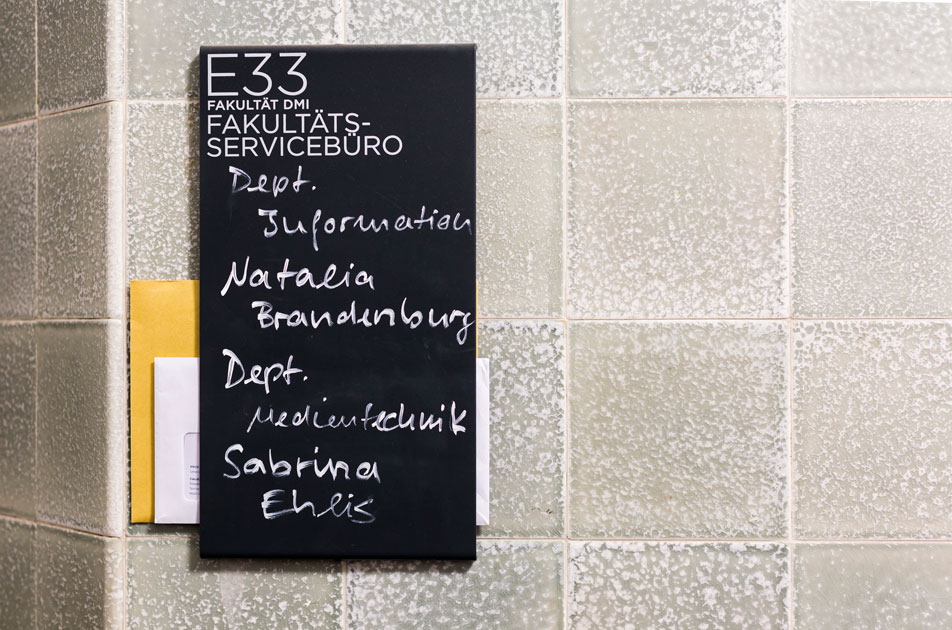 E33
FAKULTÄT DMI
FAKULTÄTS-
SERVICEBÜRO
Dept.
Information
Natalia
Brandenburg
Dept.
Medientechnik
Sabrina
Ehlis